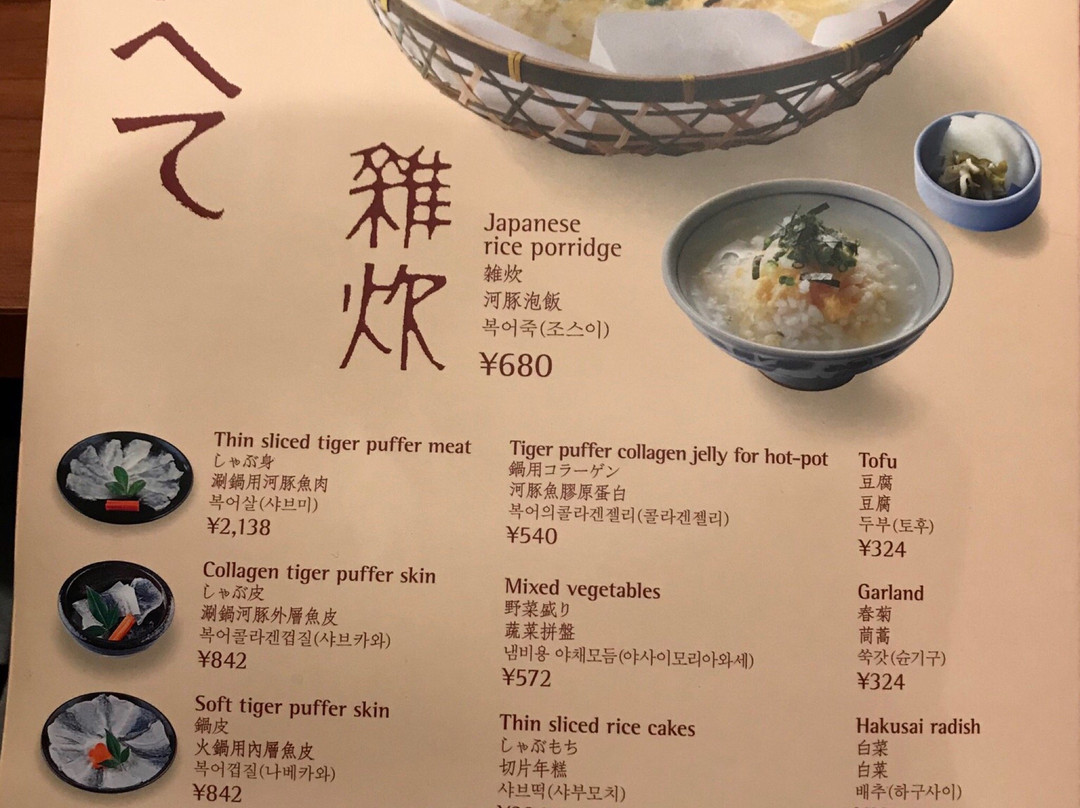 へて
雜炊
Japanese
rice porridge
雑炊
河豚泡飯
복어죽(조스이)
¥680
Thin sliced tiger puffer meat
しゃぶ身
涮鍋用河豚魚肉
복어살(샤브미)
¥2,138
Collagen tiger puffer skin
しゃぶ皮
涮鍋河豚外層魚皮
복어콜라겐껍질(샤브카와)
¥842
Soft tiger puffer skin
鍋皮
火鍋用內層魚皮
복어껍질(나베카와)
¥842
Tiger puffer collagen jelly for hot-pot
鍋用コラーゲン
河豚魚膠原蛋白
복어의콜라겐젤리(콜라겐젤리)
¥540
Mixed vegetables
野菜盛り
蔬菜拼盤
냄비용 야채모듬(야사이모리아와세)
¥572
Thin sliced rice cakes
しゃぶもち
切片年糕
샤브떡(샤부모치)
Tofu
豆腐
豆腐
두부(토후)
¥324
Garland
春菊
茼蒿
쑥갓(슌기구)
¥324
Hakusai radish
白菜
白菜
배추(하구사이)